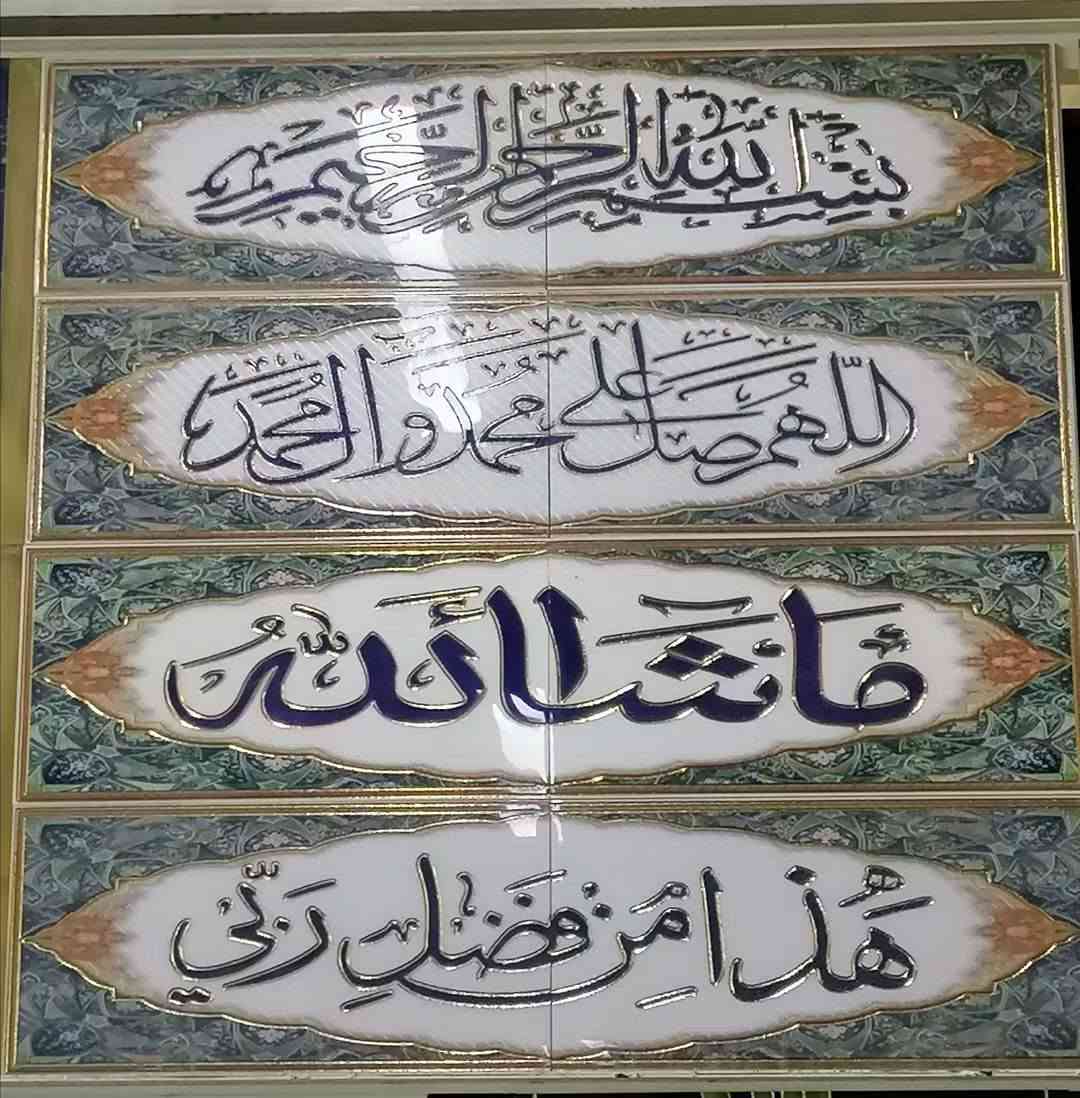 بسم الله الرحمن الرحيم
اللهم صل على محمد وال محمد
ماشاءالله
هذا من فضل ربي